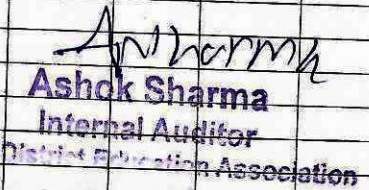 Ashok Sharma
Internal Auditor
District Education Association